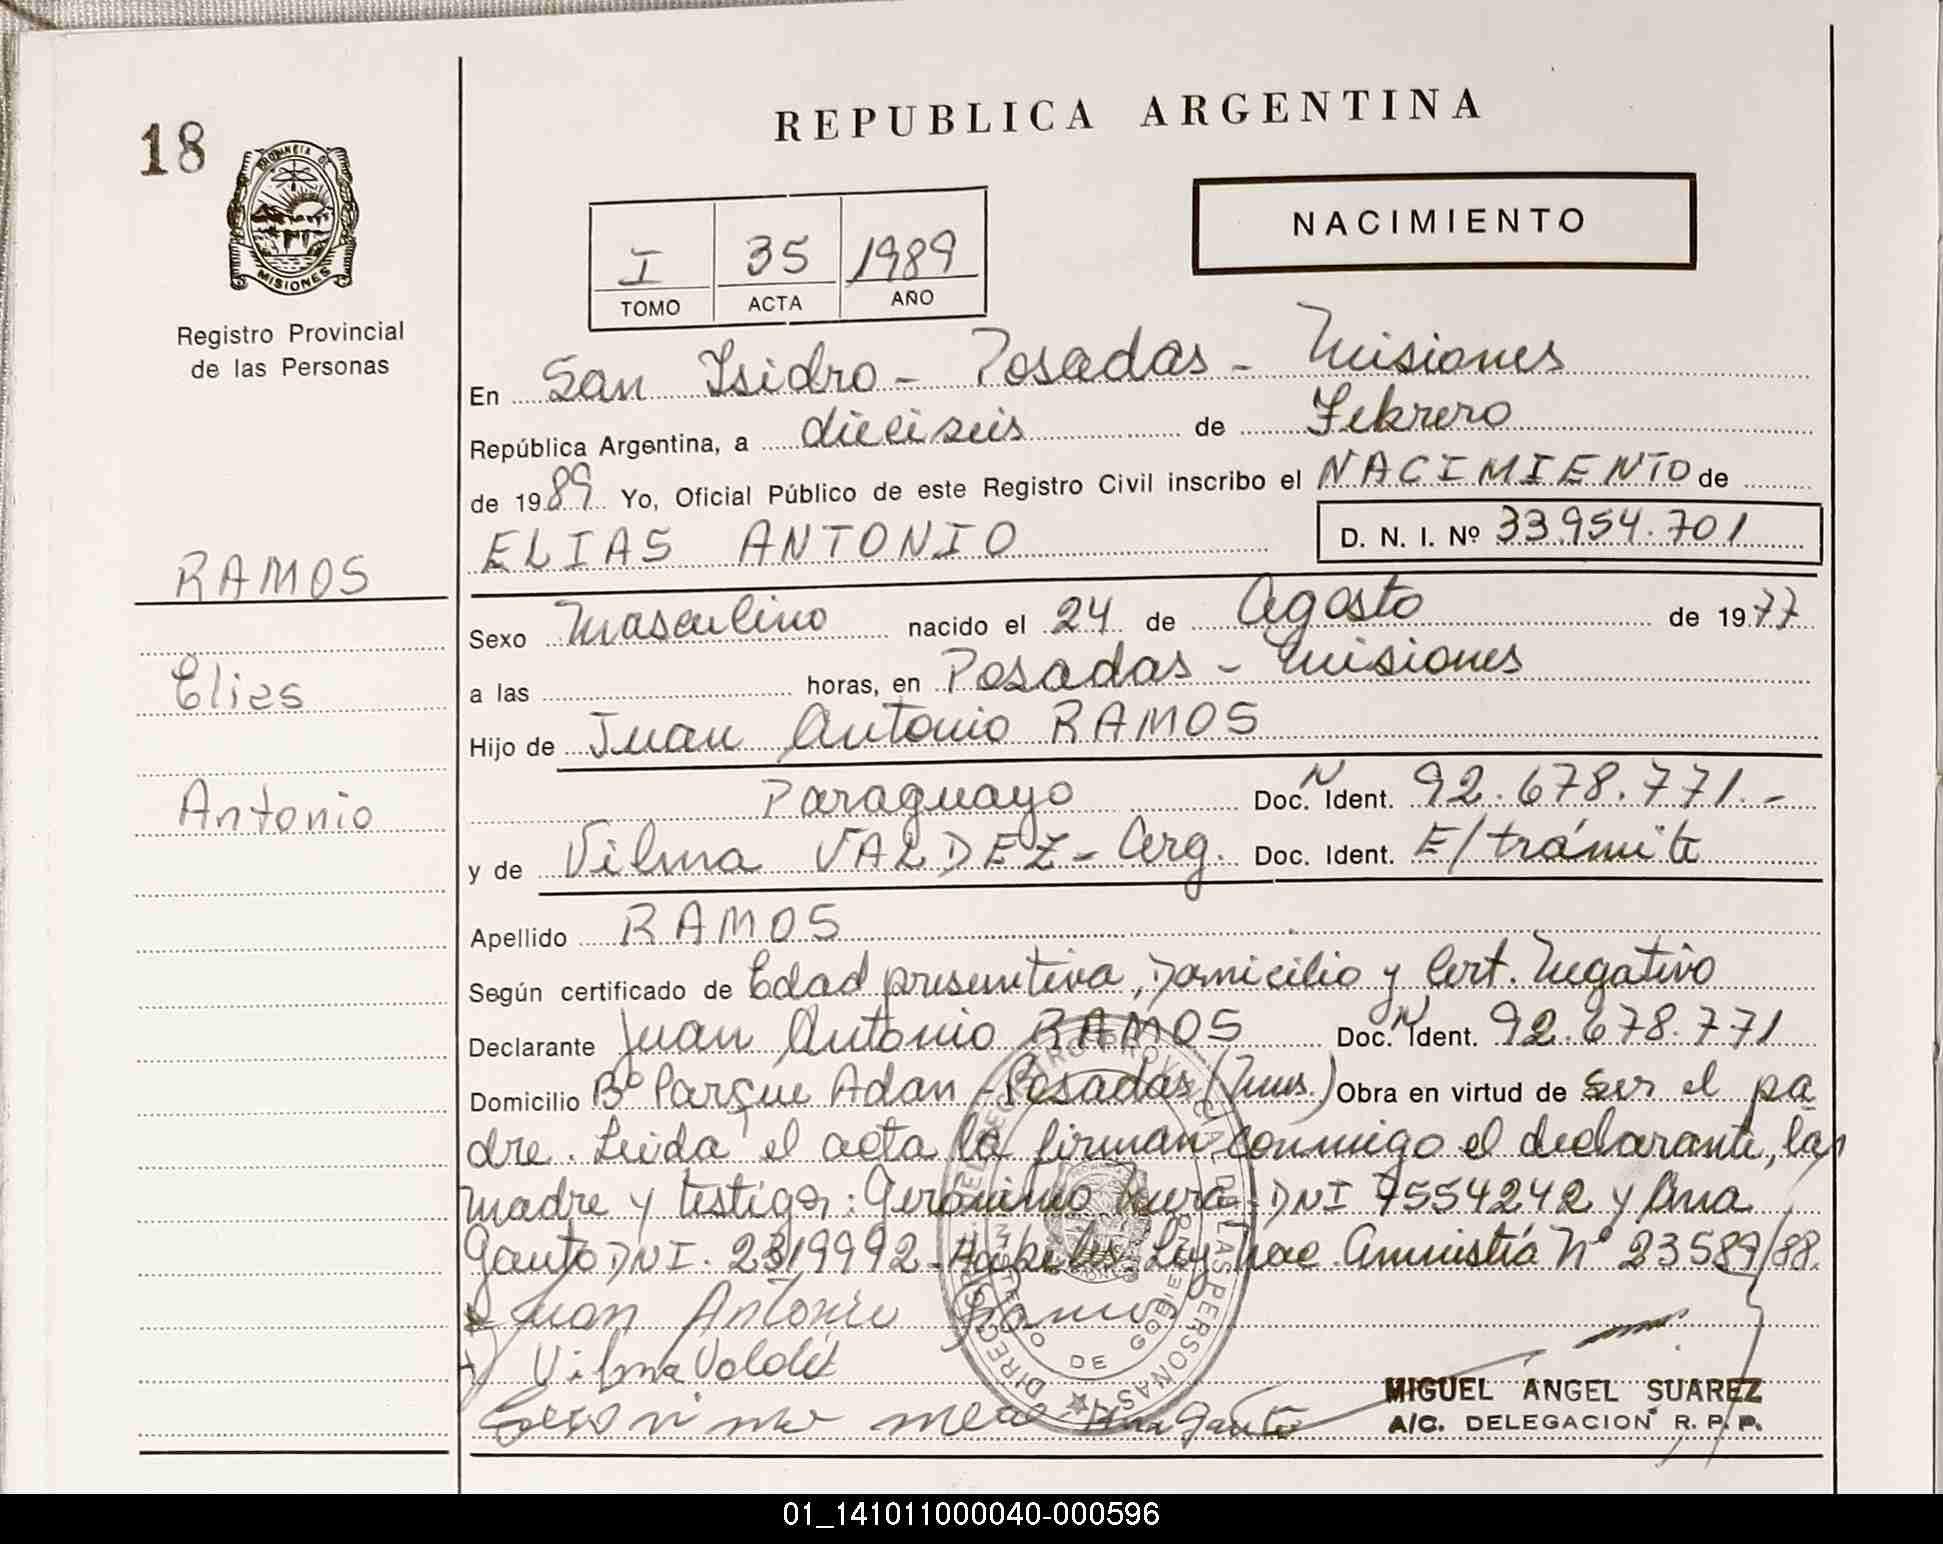 18
PROVINCIA DE
MISIONES
Registro Provincial
de las Personas
REPUBLICA ARGENTINA
I 35 1989
TOMO ACTA AÑO
NACIMIENTO
En San Isidro - Posadas - Misiones
República Argentina, a dieciseis de Febrero
de 1989 Yo, Oficial Público de este Registro Civil inscribo el NACIMIENTO de
ELIAS ANTONIO D. N. I. Nº 33.954.701
RAMOS
Elias
Antonio
Sexo Masculino nacido el 24 de Agosto de 1977
a las horas, en Posadas - Misiones
Hijo de Juan Antonio RAMOS
Paraguayo Doc. N Ident. 92.678.771.-
y de Vilma VALDEZ - Arg. Doc. Ident. E/trámite
Apellido RAMOS
Según certificado de Edad presuntiva, Domicilio y Cert. Negativo
Declarante Juan Antonio RAMOS Doc. N Ident. 92.678.771
Domicilio Bº Parque Adan - Posadas (Mnes.) Obra en virtud de ser el pa
dre. Leida el acta la firman conmigo el declarante, la
madre y testigos: Gerónimo Mera DNI 7554242 y Ana
Gauto DNI. 2319992 - Ley Nac. Amnistía Nº 23589/88.
Juan Antonio Ramos
Vilma Valdez
Geronimo mera Ana Gauto
MIGUEL ANGEL SUAREZ
A/C. DELEGACION R. P. P.
01_141011000040-000596